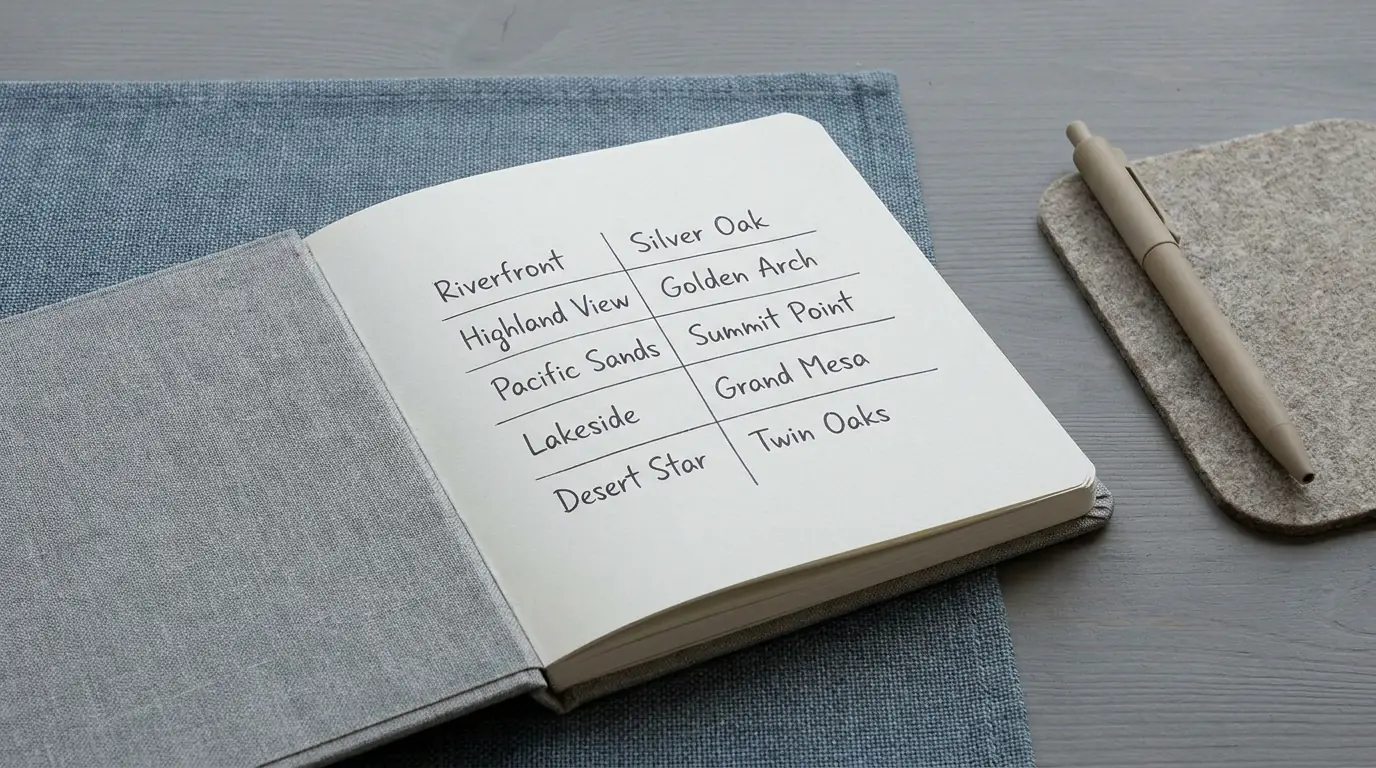 Riverfront Silver Oak
Highland View Golden Arch
Pacific Sands Summit Point
Lakeside Grand Mesa
Desert Star Twin Oaks